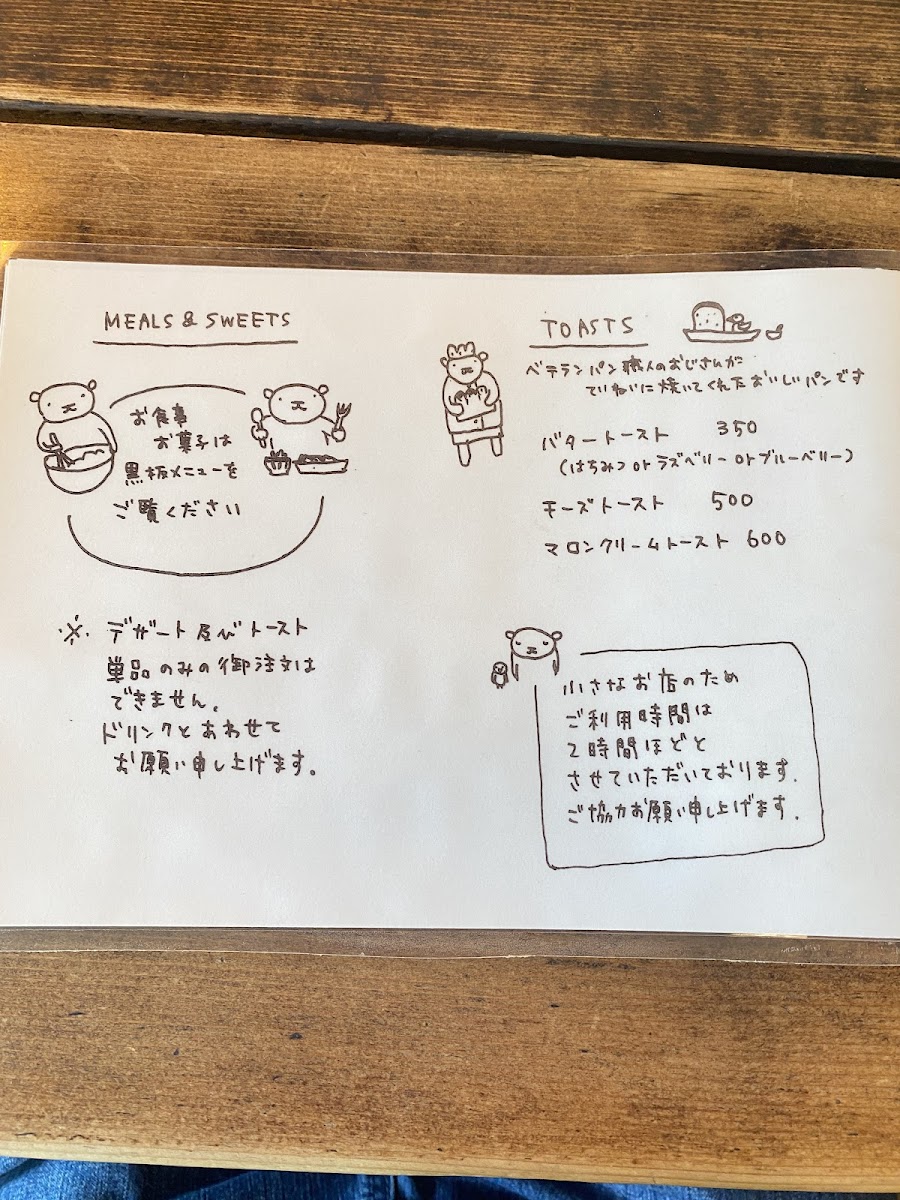 MEALS & SWEETS
お食事
お菓子は
黒板メニューを
ご覧ください
※ デザート及びトースト
単品のみの御注文は
できません。
ドリンクとあわせて
お願い申し上げます。
TOASTS
ベテランパン職人のおじさんが
ていねいに焼いてくれたおいしいパンです
バタートースト 350
(はちみつ or ラズベリー or ブルーベリー)
チーズトースト 500
マロンクリームトースト 600
小さなお店のため
ご利用時間は
2時間ほどと
させていただいております.
ご協力お願い申し上げます.